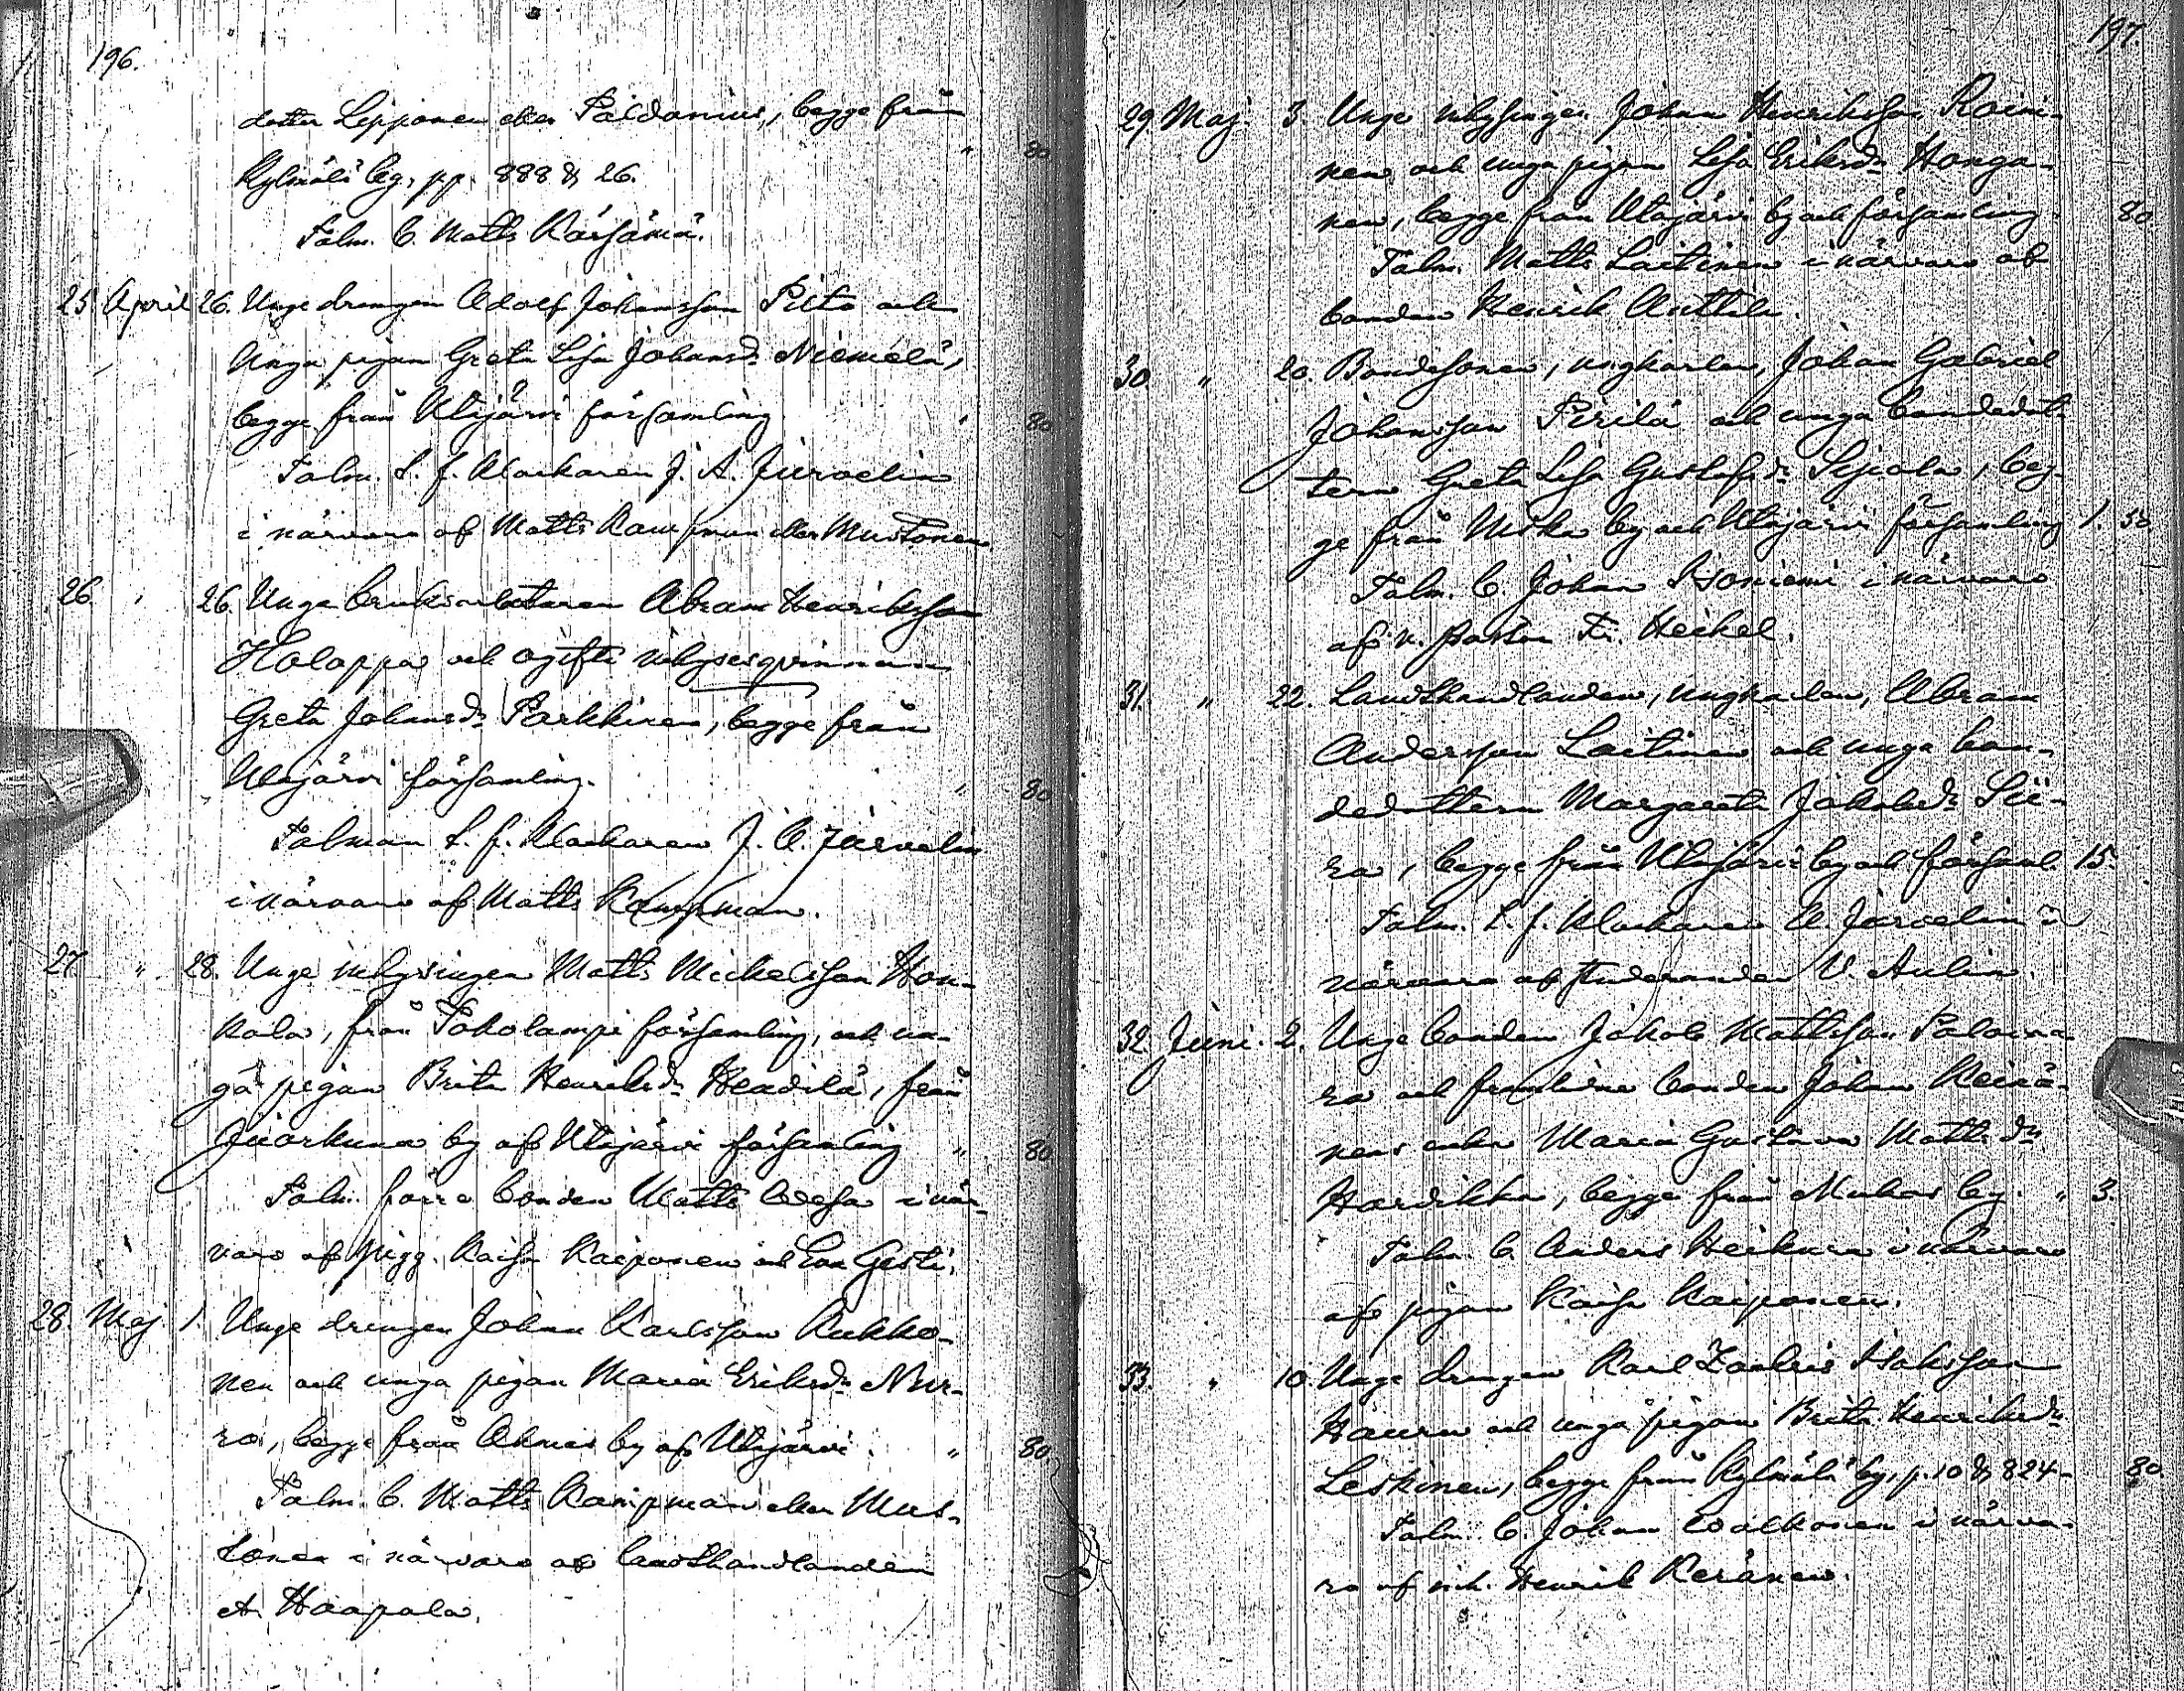 196.
dotter Lepponen eller Paldanius, begge från
Kylmälä by, pp. 888 & 26. " 80
Talm. b. Matts Kärsämä.
25 April 26. Unge drengen Adolf Johansson Piito och
unga pigan Greta Lisa Johansdr Niemelä,
begge från Utajärvi församling " 80
Talm. t. f. klockaren J. A. Järvelin
i närvaro af Matts Kampman eller Mustonen
26 " 26. Unge bruksarbetaren Abram Henriksson
Holappa och ogifte inhysesqvinnan
Greta Johansdr Parkkinen, begge från
Utajärvi församling. " 80
Talman t. f. klockaren J. A. Järvelin
i närvaro af Matts Kampman.
27 " 28. Unge inhysingen Matts Mickelsson Hon-
kala, från Toholampi församling, och un-
ga pigan Brita Henriksdr Headilä, från
Juorkuna by af Utajärvi församling " 80
Talm. förre bonden Matts Wesa i när-
varo af pigg. Kaisa Kaiponen och Eva Gesti.
28. Maj 1. Unge drengen Johan Karlsson Rukko-
nen och unga pigan Maria Eriksdr Nur-
ro, begge från Ahmas by af Utajärvi. " 80
Talm. b. Matts Kampman eller Mus-
tonen i närvaro af landthandlanden
A. Haapala.
197.
29 Maj. 3. Unge inhysingen Johan Henriksson Roini-
nen och unga pigan Lisa Eriksdr Honga-
nen, begge från Utajärvi by och församling. 80
Talm. Matts Laitinen i närvaro af
bonden Henrik Anttila.
30 " 20. Bondesonen, ungkarlen, Johan Gabriel
Johansson Pirilä och unga bondedot-
tern Greta Lisa Gustafsdr Sejcola, beg-
ge från Muka by och Utajärvi församling 1. 50
Talm. b. Johan Isoniemi i närvaro
af v. pastor Fr. Heikel.
31. " 22. Landthandlanden, ungkarlen, Abram
Andersson Laitinen och unga bon-
dedottern Margareta Jakobsdr Sii-
ra, begge från Utajärvi by och församl. 15.
Talm. t. f. klockaren A. Järvelin i
närvaro af studeranden V. Aulin.
32. Juni. 2. Unge bonden Jakob Mattsson Palova-
ra och framlidne bonden Johan Keinä-
nens enka Maria Gustava Mattsdr
Harvikka, begge från Muhos by. " 3.
Talm. b. Anders Heikura i närvaro
af pigan Kaisa Kaiponen.
33. " 10. Unge drengen Karl Zachris Isaksson
Hauru och unga pigan Brita Henriksdr
Leskinen, begge från Kylmälä by, p. 10 & 824. 80
Talm. b. Johan Walkonen i närva-
ro af inh. Henrik Keränen.